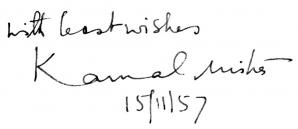 with best wishes
Kamal Mishra
15/11/57